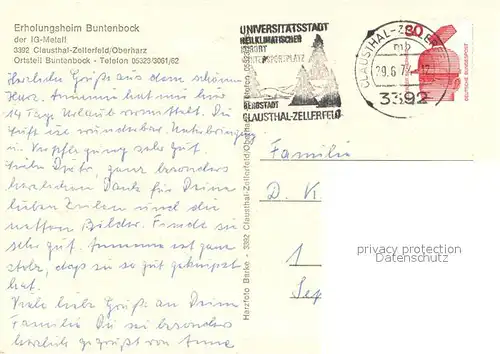 Erholungsheim Buntenbock
der IG-Metall
3392 Clausthal-Zellerfeld/Oberharz
Ortsteil Buntenbock - Telefon 05323/3061/62
Herzliche Grüße aus dem schönen
Harz. haben wir hier
14 Tage Urlaub vermittelt. Die
Luft ist wunderbar. Unterbringung
u. Verpflegung sehr gut.
ganz besonders
herzlichen Dank für Deine
lieben Zeilen und die
netten Bilder. Finde sie
sehr gut. ist ganz
stolz, daß sie so gut geknipst
hat.
Viele liebe Grüße an Deine
Familie Du sei besonders
herzlich gegrüßt von Anne
Harzfoto Barke - 3392 Clausthal-Zellerfeld/Oberharz
UNIVERSITÄTSSTADT
HEILKLIMATISCHER
KURORT
WINTERSPORTPLATZ
BERGSTADT
CLAUSTHAL-ZELLERFELD
CLAUSTHAL-ZELLERF
29.6.7
3392
30
DEUTSCHE BUNDESPOST
Familie
D. K
1
privacy protection
Datenschutz